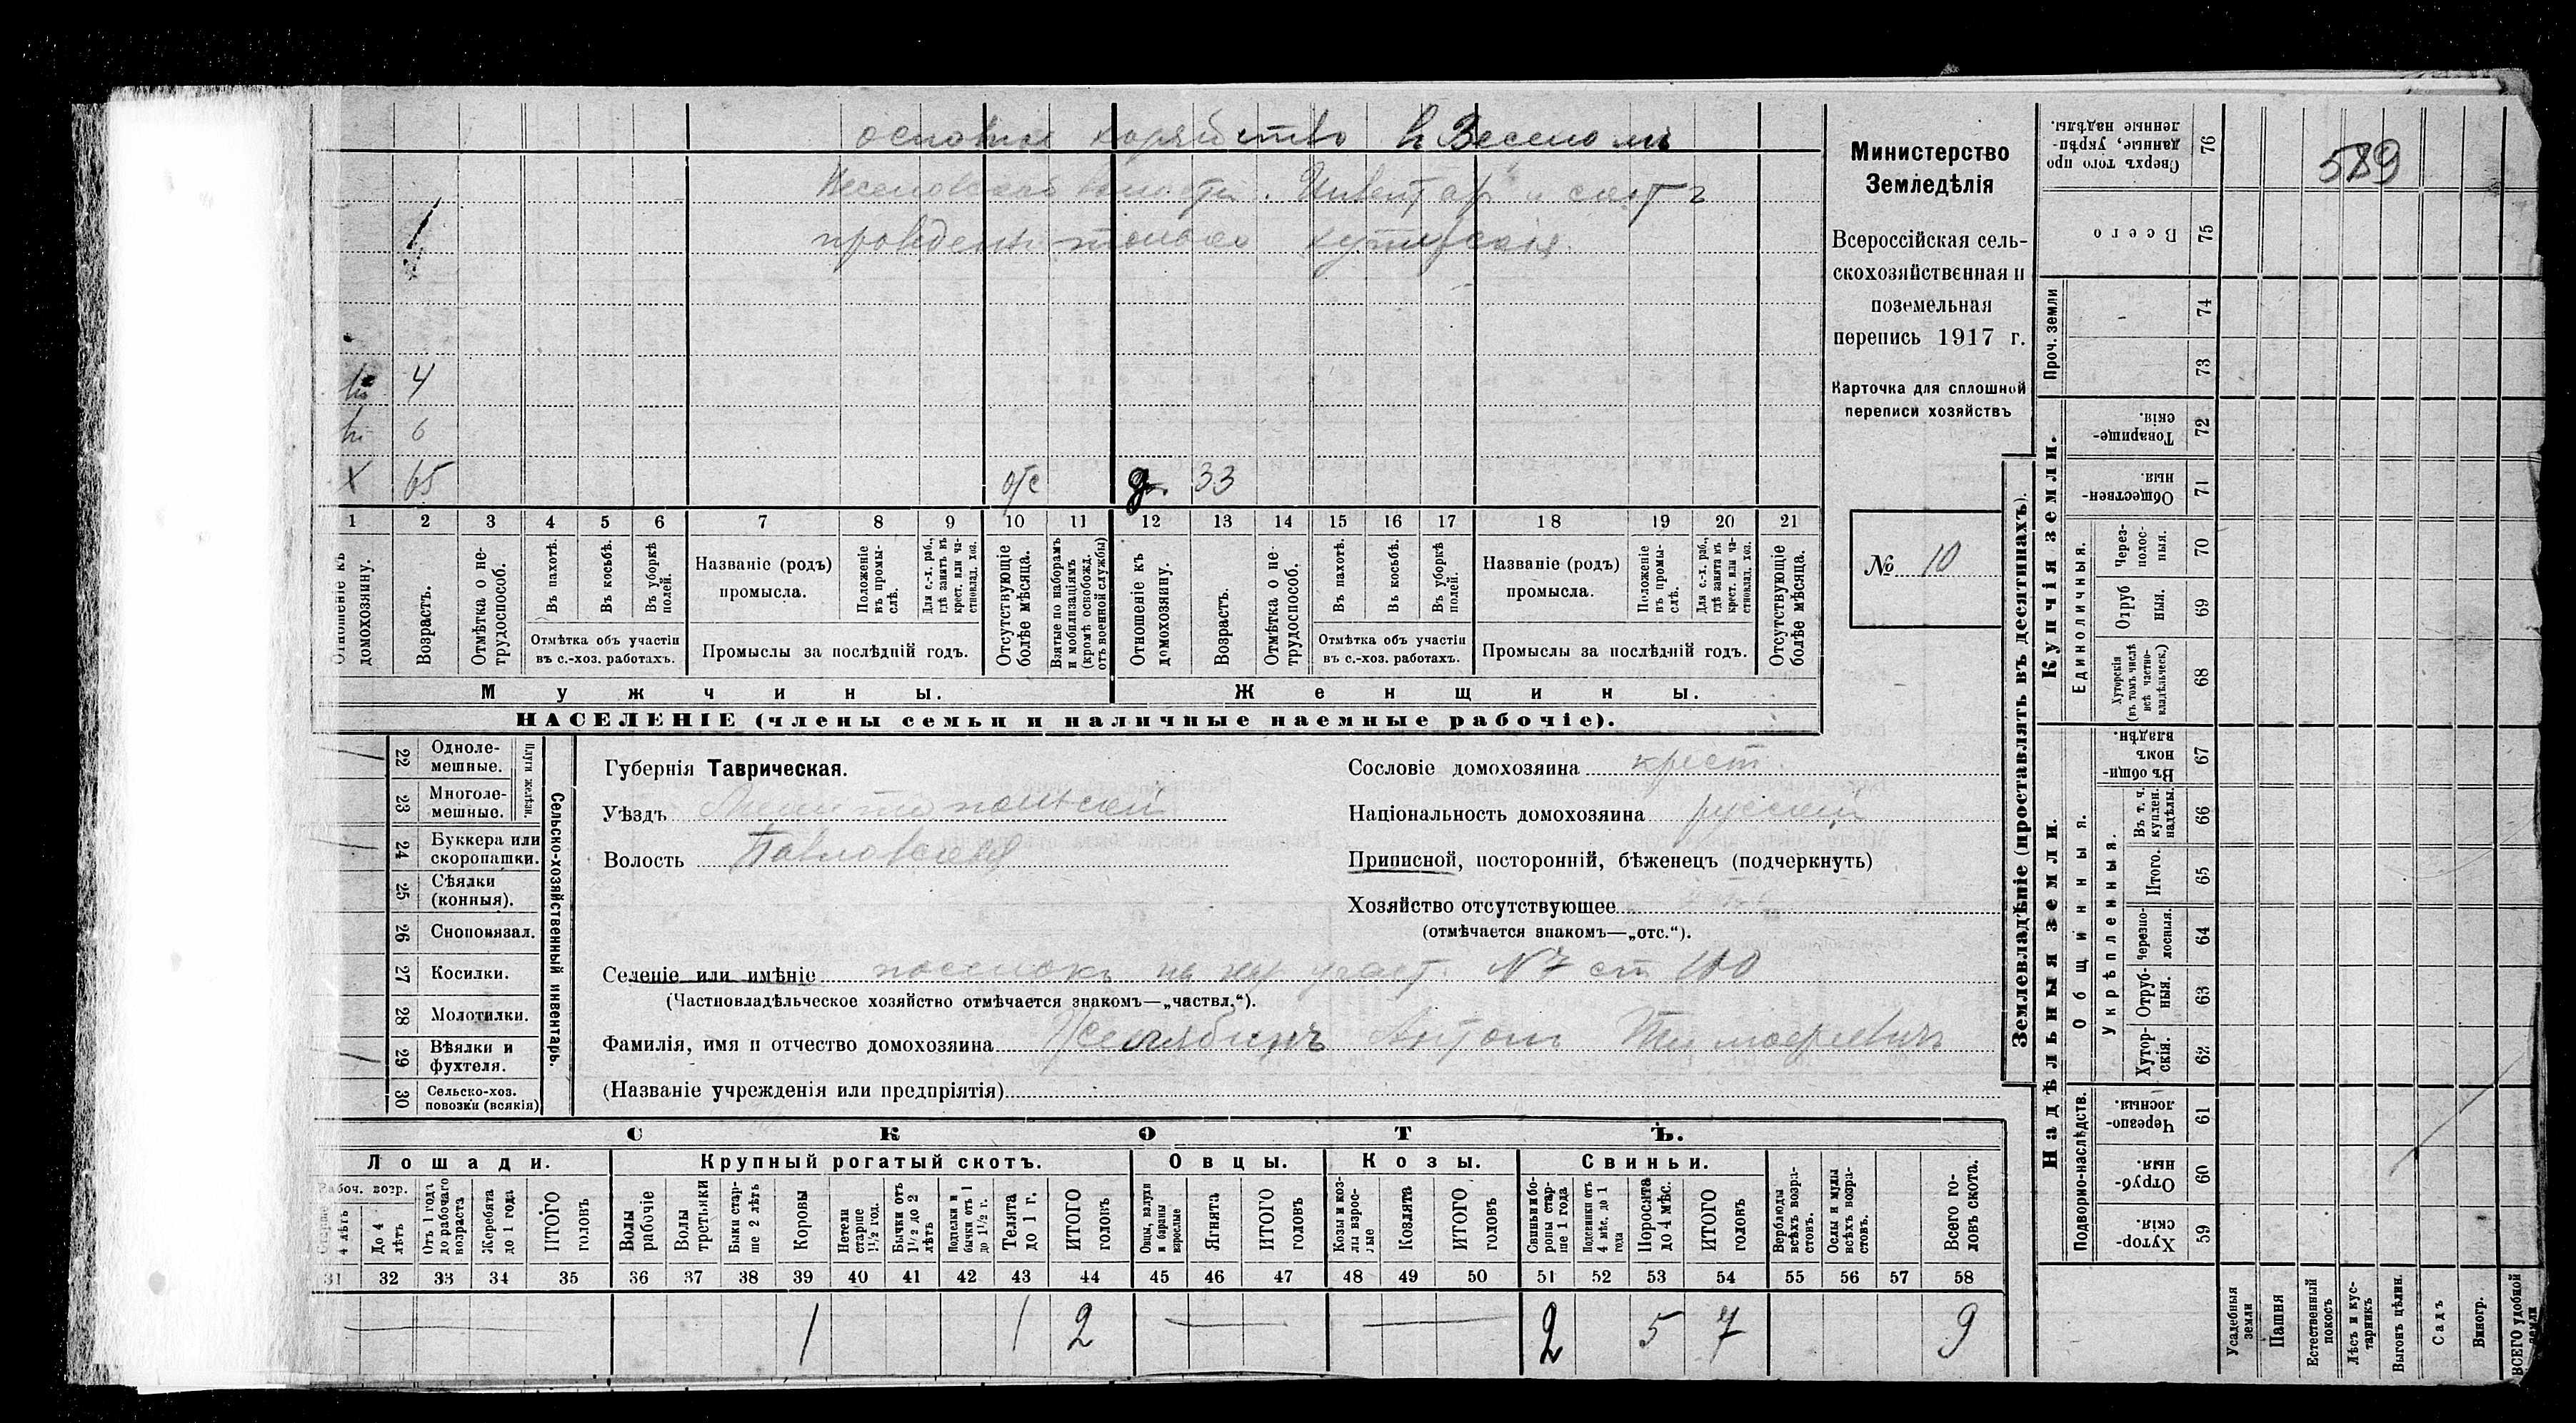 основное хозяйство въ Веселомъ
Веселовской волости. Инвентарь и скотъ
проведенъ только хуторской.
в. 4
в. 6
X 65 отс д. 33
1 2 3 4 5 6 7 8 9 10 11 12 13 14 15 16 17 18 19 20 21
Отношеніе къ домохозяину.
Возрастъ.
Отмѣтка о нетрудоспособ.
Въ пахотѣ.
Въ косьбѣ.
Въ уборкѣ полей.
Отмѣтка объ участіи въ с.-хоз. работахъ.
Названіе (родъ) промысла.
Положеніе въ промыслѣ.
Для с.-х. раб., гдѣ занятъ въ крест. или частновлад. хоз.
Промыслы за послѣдній годъ.
Отсутствующіе болѣе мѣсяца.
Взятые по наборамъ и мобилизаціямъ (кромѣ освобожд. отъ военной службы)
Отношеніе къ домохозяину.
Возрастъ.
Отмѣтка о нетрудоспособ.
Въ пахотѣ.
Въ косьбѣ.
Въ уборкѣ полей.
Отмѣтка объ участіи въ с.-хоз. работахъ.
Названіе (родъ) промысла.
Положеніе въ промыслѣ.
Для с.-х. раб., гдѣ занята въ крест. или частновлад. хоз.
Промыслы за послѣдній годъ.
Отсутствующіе болѣе мѣсяца.
Мужчины. Женщины.
НАСЕЛЕНІЕ (члены семьи и наличные наемные рабочіе).
Министерство
Земледѣлія
Всероссійская сель-
скохозяйственная и
поземельная
перепись 1917 г.
Карточка для сплошной
переписи хозяйствъ
№ 10
22 Однолемешные.
23 Многолемешные.
Плуги желѣзн.
24 Буккера или скоропашки.
25 Сѣялки (конныя).
26 Сноповязал.
27 Косилки.
28 Молотилки.
29 Вѣялки и фухтеля.
30 Сельско-хоз. повозки (всякія)
Сельско-хозяйственный инвентарь.
Губернія Таврическая.
Уѣздъ Мелитопольскій
Волость Павловская
Селеніе или имѣніе поселокъ на хут. участ. №7 ст 100
(Частновладѣльческое хозяйство отмѣчается знакомъ—„частвл.“).
Фамилія, имя и отчество домохозяина Антонъ Тимофѣевичъ
(Названіе учрежденія или предпріятія)
Сословіе домохозяина крест.
Національность домохозяина русский
Приписной, посторонній, бѣженецъ (подчеркнуть)
Хозяйство отсутствующее
(отмѣчается знакомъ—„отс.“).
СКОТЪ.
Лошади. Крупный рогатый скотъ. Овцы. Козы. Свиньи.
Рабоч. возр.
Старше 4 лѣтъ
До 4 лѣтъ
Отъ 1 года до рабочаго возраста
Жеребята до 1 года
ИТОГО головъ
Волы рабочіе
Волы третьяки
Быки старше 2 лѣтъ
Коровы
Нетели старше 1½ год.
Бычки отъ 1½ до 2 лѣтъ
Подтелки и бычки отъ 1 до 1½ г.
Телята до 1 г.
ИТОГО головъ
Овцы, валухи и бараны взрослые
Ягнята
ИТОГО головъ
Козы и козлы взрослые
Козлята
ИТОГО головъ
Свиньи и боровы старше 1 года
Подсвинки отъ 4 мѣс. до 1 года
Поросята до 4 мѣс.
ИТОГО головъ
Верблюды всѣхъ возрастовъ.
Ослы и мулы всѣхъ возрастовъ.
Всего головъ скота.
31 32 33 34 35 36 37 38 39 40 41 42 43 44 45 46 47 48 49 50 51 52 53 54 55 56 57 58
1 1 2 2 5 7 9
Землевладѣніе (проставлять въ десятинахъ).
589
Сверхъ того проданные, укрѣпленные надѣлы. 76
Всего 75
Проч. земли 74 73
Купчія земли.
Товарищескія. 72
Общественныя 71
Единоличныя.
Черезполосныя. 70
Отрубныя. 69
Хуторскія (въ томъ числѣ всѣ частновладѣльческ.) 68
Надѣльныя земли.
Общинныя.
Въ общинномъ владѣн. 67
Укрѣпленныя.
Въ т. ч. куплен. надѣлы. 66
Итого. 65
Черезполосныя. 64
Отрубныя. 63
Хуторскія. 62
Подворно-наслѣдств.
Черезполосныя. 61
Отрубныя. 60
Хуторскія. 59
Усадебныя земли
Пашня
Естественный покосъ
Лѣсъ и кустарникъ
Выгонъ цѣлин.
Садъ
Виногр.
ВСЕГО удобной земли